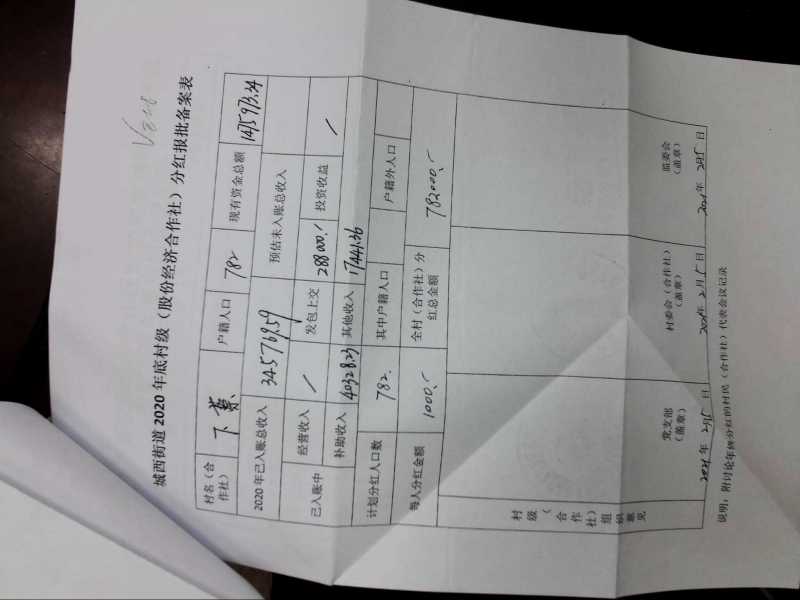 城西街道2020年底村级（股份经济合作社）分红报批备案表
村名（合作社） 户籍人口 782 现有资金总额 1475973.24
2020年已入账总收入 345769.59 预估未入账总收入
已入账中 经营收入 / 发包上交 288000.- 投资收益 /
补助收入 40328.23 其他收入 17441.36
计划分红人口数 782. 其中户籍人口 户籍外人口
每人分红金额 1000.- 全村（合作社）分红总金额 782000.-
村级（合作社）组织意见
党支部（盖章） 村委会（合作社）（盖章） 监委会（盖章）
2021年2月5日 2021年2月5日 2021年2月5日
说明：附讨论年终分红的村民（合作社）代表会议记录